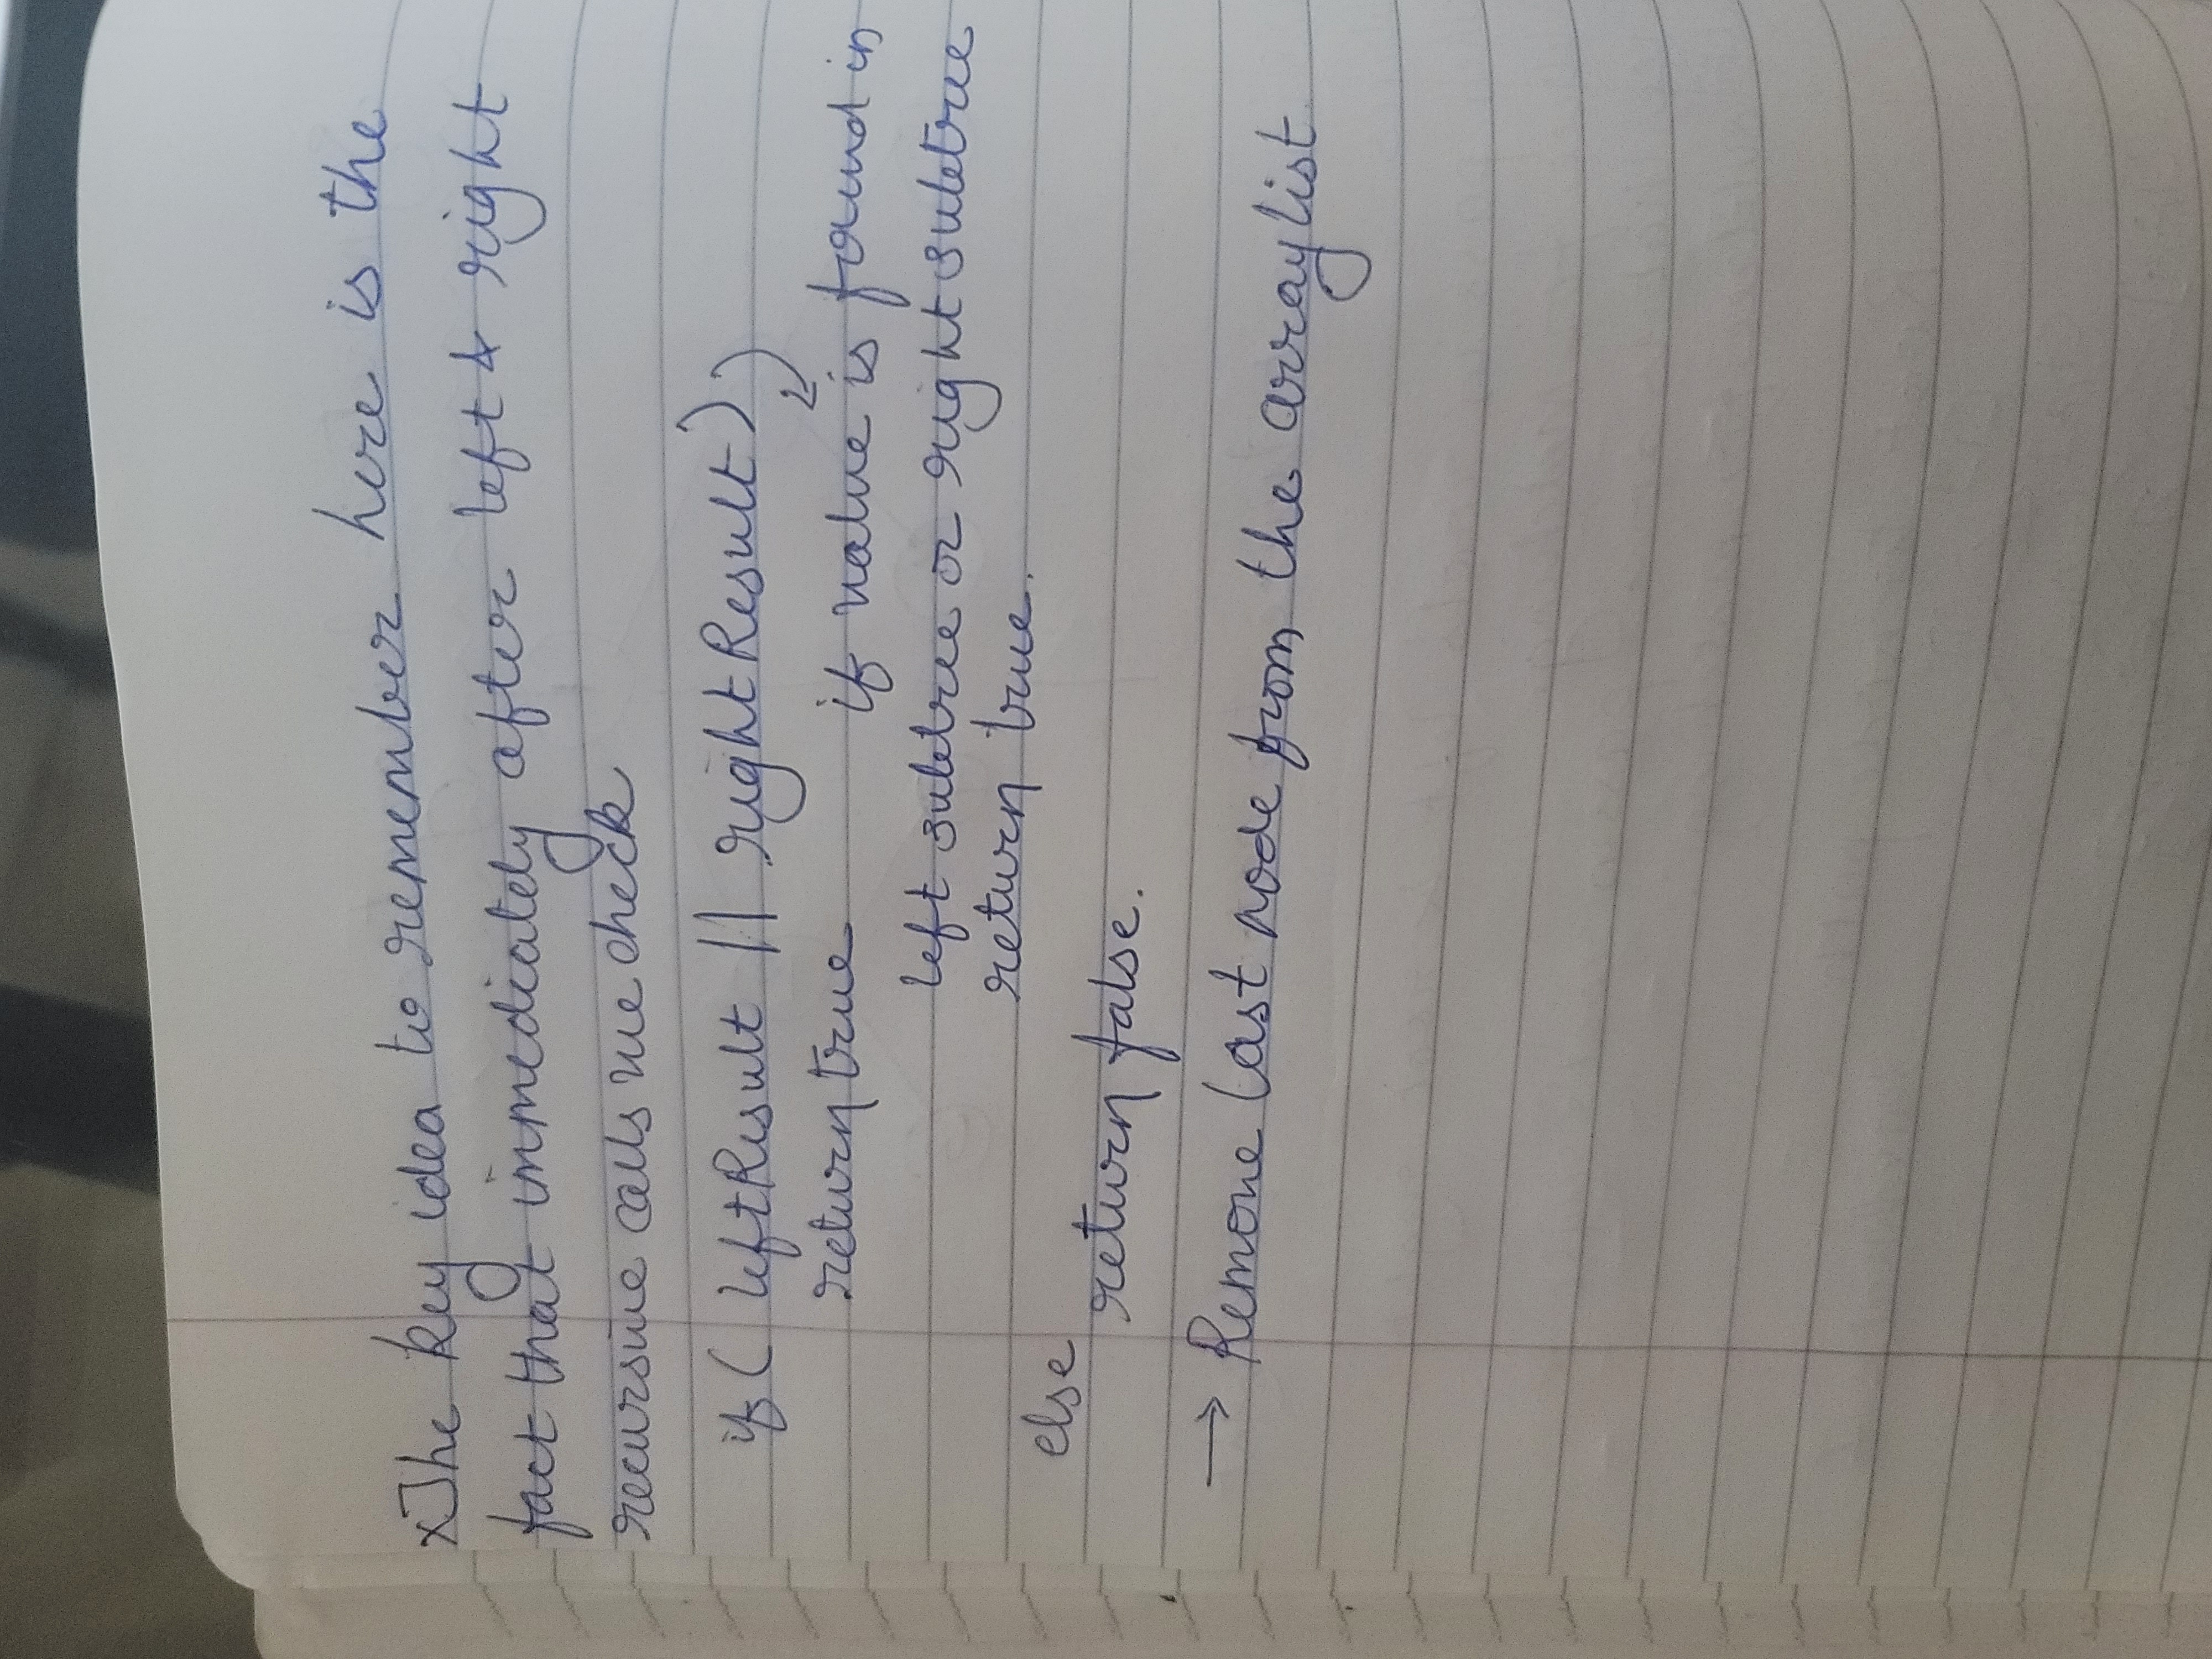 xThe key idea to remember here is the
fact that immediately after left & right
recursive calls we check
if ( leftResult || rightResult)
return true if value is found in
left subtree or right subtree
return true.
else
return false.
→ Remove last node from the arraylist